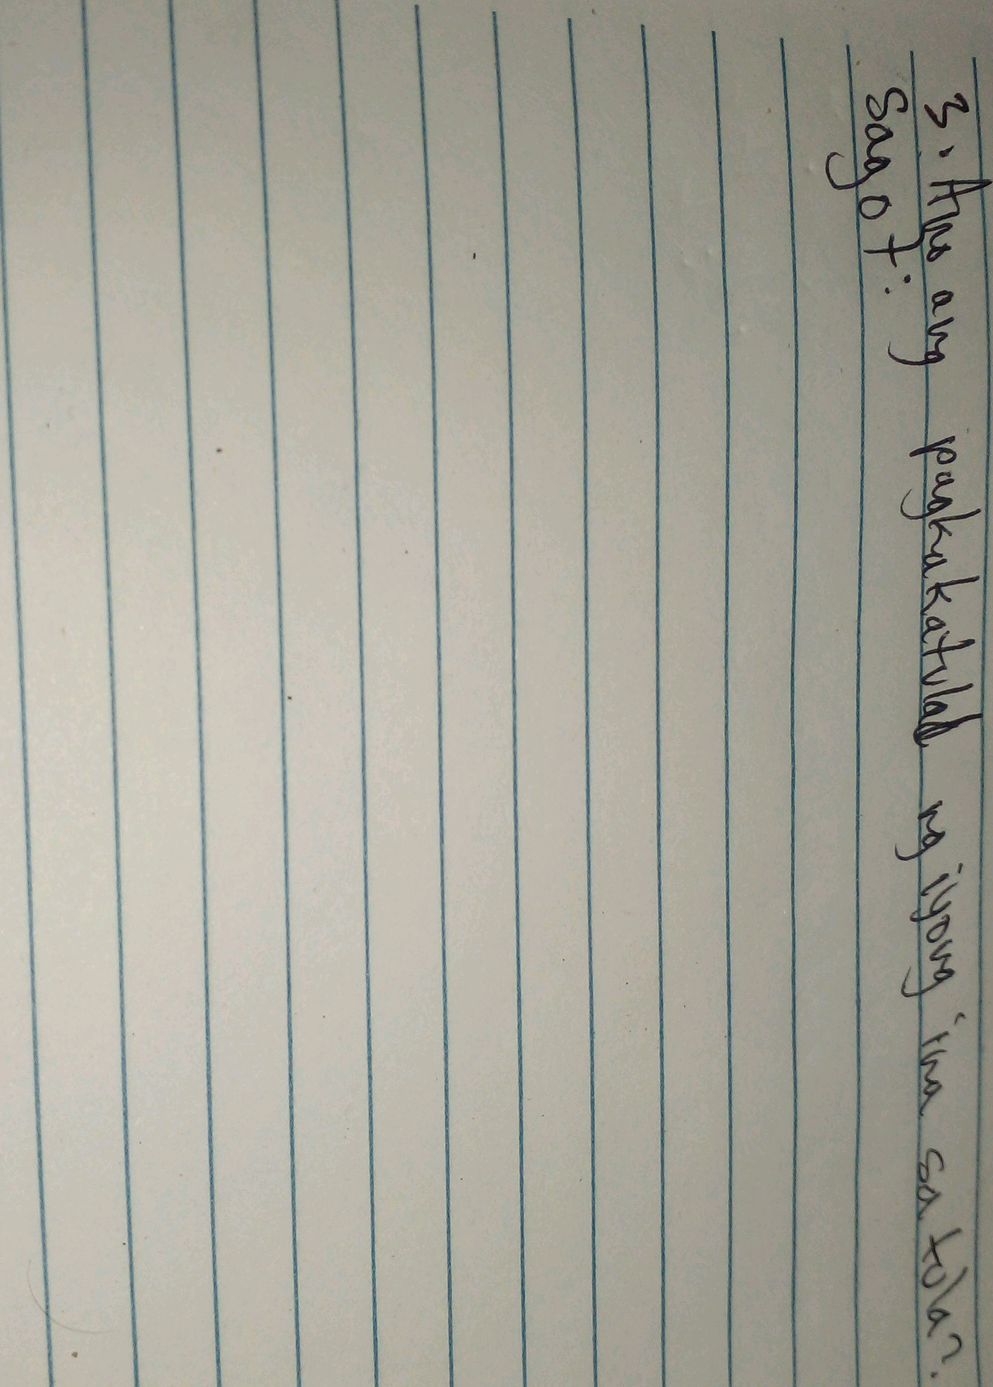 3. Ano ang pagkakatulad ng iyong ina sa tula?
Sagot: